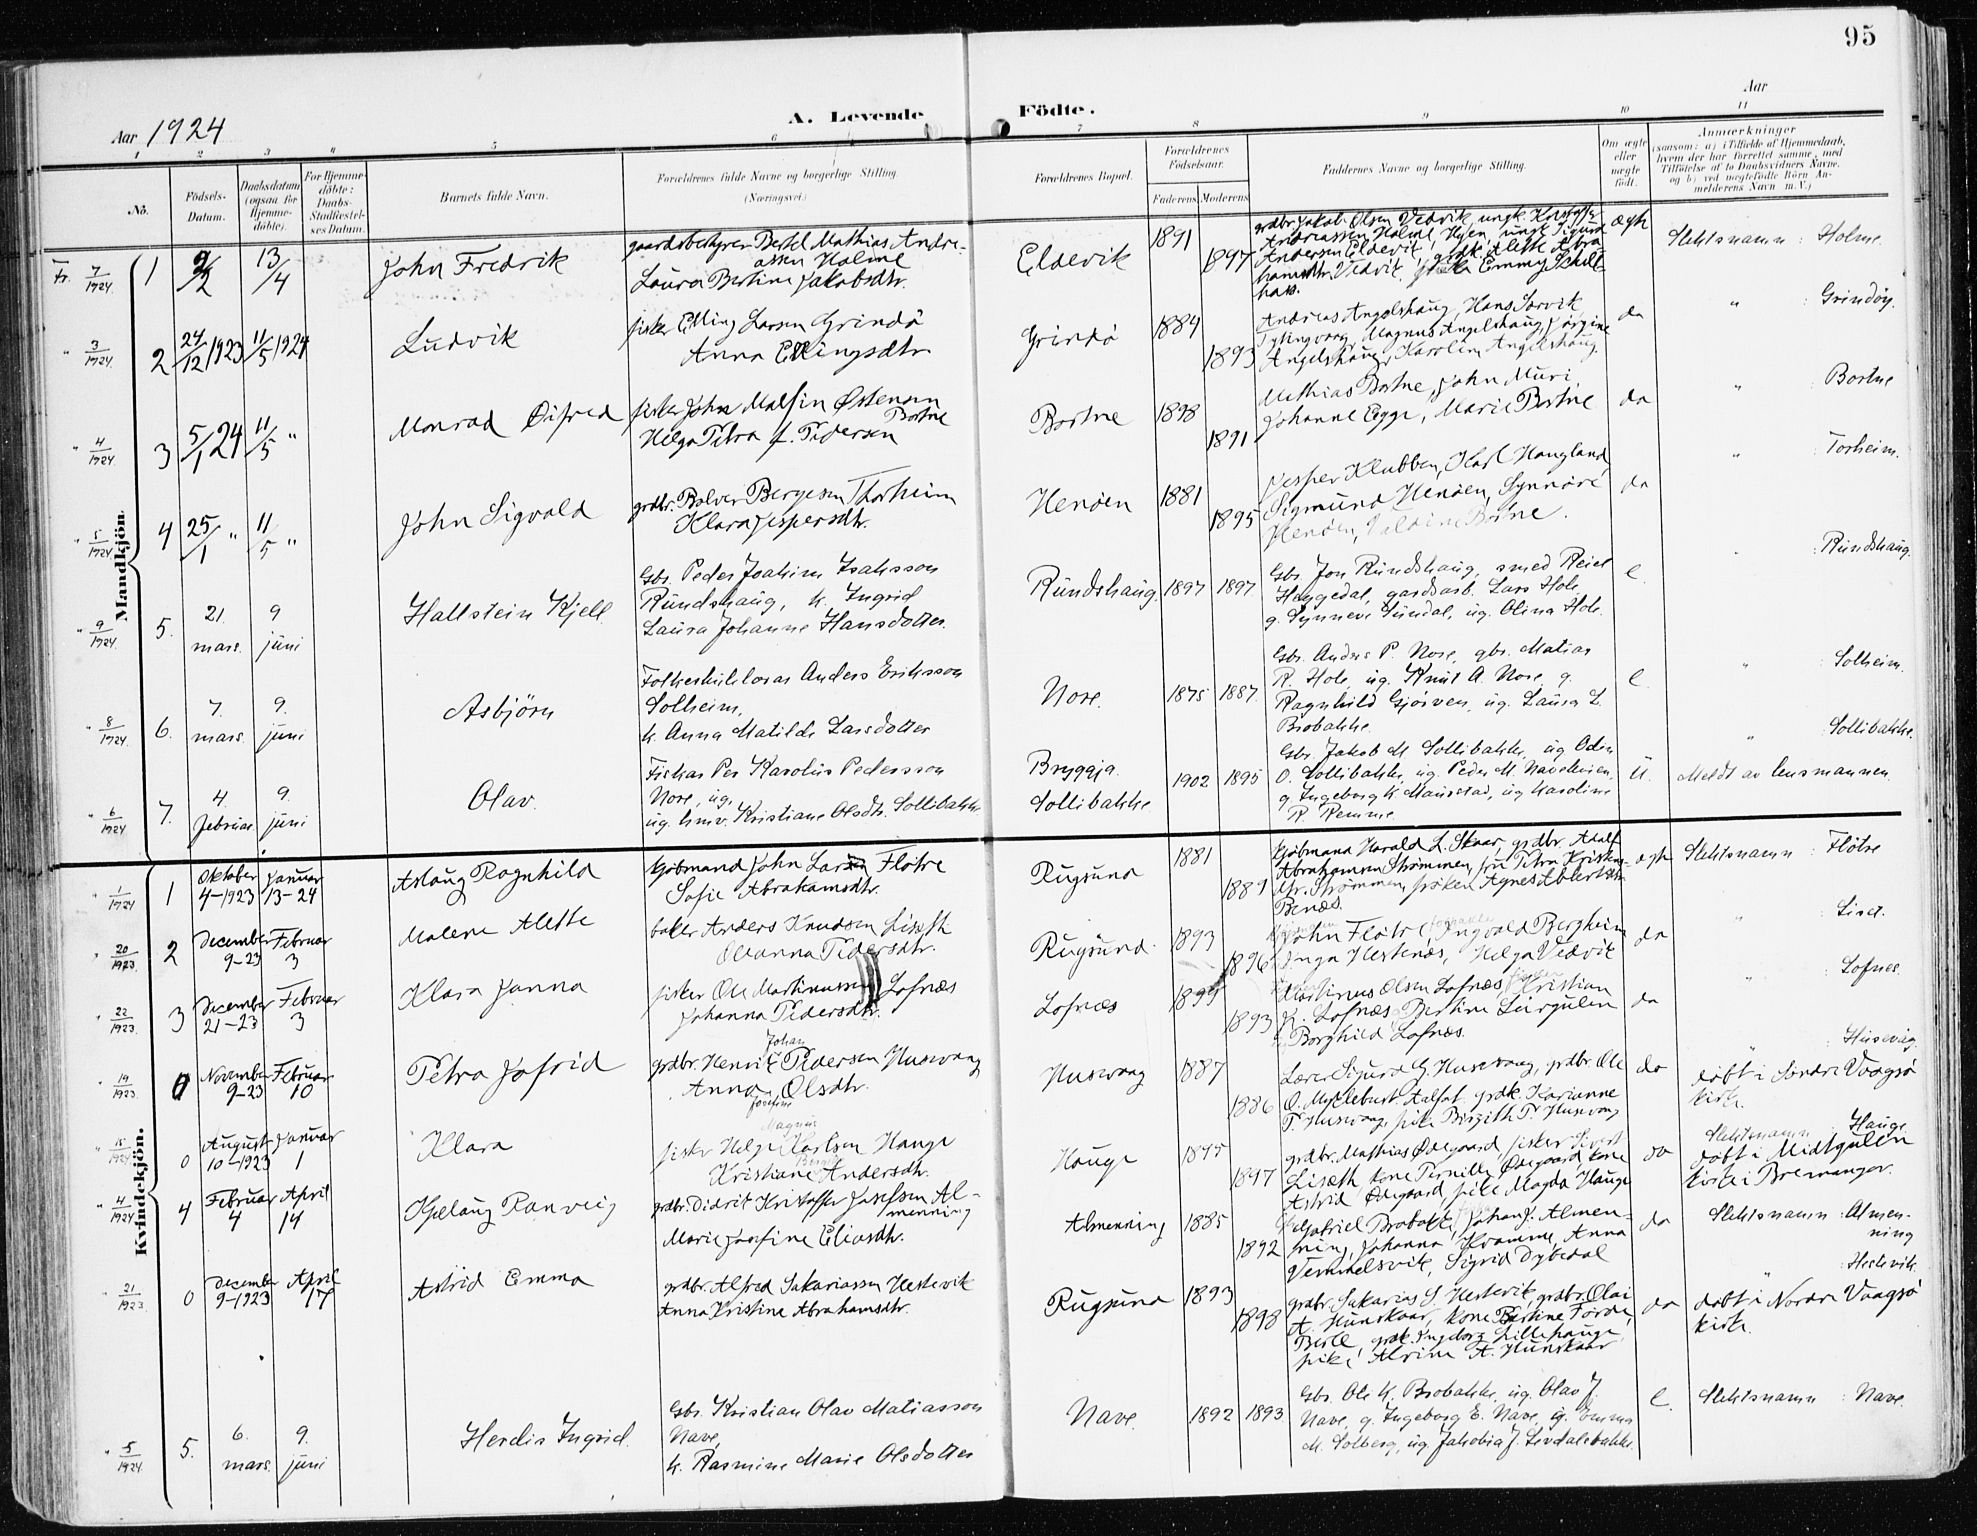 95
Aar 1924
A. Levende
Födte.
Aar
1 2 3 4 5 6 7 8 9 10 11
No.
Födsels-Datum.
Daabsdatum (ogsaa for Hjemme-döbte).
For Hjemme-döbte: Daabs-Stadfæstel-ses Datum.
Barnets fulde Navn.
Forældrenes fulde Navne og borgerlige Stilling.
(Næringsvei.)
Forældrenes Bopæl.
Forældrenes Födselsaar.
Faderens Moderens
Faddernes Navne og borgerlige Stilling.
Om ægte eller uægte födt.
Anmærkninger
(saasom: a) i Tilfælde af Hjemmedaab,
hvem der har forrettet samme, med
Tilföielse af to Daabsvidners Navne,
og b) ved uægtefödte Börn An-
melderens Navn m. V.)
Mandkjön.
Fr. 7/1924 1 9/2 13/4 John Fredrik
gaardsbestyrer Bertel Mathias Andre-
assen Holme
Laura Bertine Jakobsdtr.
Eldevik 1891 1897
grdbr. Jakob Olsen Vedvik, ungk. Kristoffer
Andreassen Holme, Hyen, ungk. Sigurd
Andersen Eldevik, grdk. Alette Abra
hamsdtr. Vedvik,
ægte Slektsnamn: Holme.
" 3/1924 2 24/12 1923 11/5 1924 Ludvik
fisker Elling Larsen Grindö
Anna Ellingsdtr.
Grindö 1884 1893
Andreas Angelshaug, Hans Sørvik
Magnus Angelshaug, Jörgine
Angelshaug, Karoline Angelshaug.
da " : Grindöy.
" 4/1924 3 5/1 24 11/5 " Monrad Øifred
fisker John Malfin Østensen
Bortne
Helga Petra f. Pedersen
Bortne 1898 1891
Mathias Bortne, John Muri,
Johanne Egge, Marie Bortne
da " : Bortne
" 5/1924 4 25/1 " 11/5 " John Sigvald
grdbr. Bolver Bergesen Thorheim
Klara Jespersdtr.
Henöen 1881 1895
Jesper Klubben, Karl Haugland
Sigmund Henöen, Synnöve
Henöen, Valdine Bortne.
da " : Torheim.
" 9/1924 5. 21. mars. 9 juni Hallstein Kjell
Gbr. Peder Joakim Isaksson
Rundshaug, k. Ingrid
Laura Johanne Hansdotter.
Rundshaug. 1897 1897
Gbr. Jon Rundshaug, smed Reier
Heggedal, gardsarb. Lars Hole
g. Synneve Sundal, ug. Olina Hole.
e. " : Rundshaug.
" 8/1924. 6. 7. mars 9. juni Asbjörn
Folkeskulelærar Anders Eriksson
Solheim,
k. Anna Matilde Larsdotter
Nore. 1875 1887.
Gbr. Anders P. Nore, gbr. Matias
R. Hole, ug. Knut A. Nore, g.
Ragnhild Gjörven, ug. Laura L.
Brobakke.
e. " : Solheim.
" 6/1924 7. 4. februar 9. juni Olav.
Fiskar Per Karolus Pedersson
Nore, ug.
ug. hmv. Kristiane Olsdtr. Sollibakke
Bryggja.
Sollibakke 1902 1895
Gbr. Jakob M. Sollibakke, ug. Odin
O. Sollibakke, ug. Peder M. Naveleisen,
g. Ingeborg K Maurstad, ug Karoline
R. Remme.
u. " : Sollibakke.
Meldt av lensmannen.
Kvindekjön.
" 1/1924 1 Oktober 4-1923 Januar 13-24 Aslaug Ragnhild
Kjöbmand John Larsen Flotre
Sofie Abrahamsdtr.
Rugsund 1881 1889
Kjöbmand Harald L. Skaar, grdbr. Adolf
Abrahamsen Strömmen, fru Petra Kristen-
dtr. Strömmen, fröken Agnes Albertsdtr
Benæs.
ægte Slektsnamn: Flötre
" 20/1923. 2 December 9-23 Februar 3 Malene Alette
baker Anders Knudsen Liseth
Oleanna Pedersdtr.
Rugsund. 1893 1896
John Flötre, Ingvald Bergheim
Inga Hestenæs, Helga Vedvik
da " : Liset.
" 22/1923. 3 December 21-23 Februar 3 Klara Janna
fisker Ole Martinussen Lofnæs
Johanna Pedersdtr.
Lofnæs 1893
Martinus Olsen Lofnæs, Kristian
K. Lofnæs, Bertine Leirgulen
Borghild Lofnæs.
da " : Lofnes.
" 19/1923. 0 November 9-23 Februar 10 Petra Jofrid
Johan
grdbr. Henrik Pedersen Husevaag
Anna Olsdtr.
Josefine
Husevaag 1887 1886
Lærer Sigurd G. Husevaag, grdbr. Ole
O. Myklebust, grdk. Karianne
P. Husevaag, pike Birgith P. Husevaag
da " : Husevåg.
döbt i Söndre Vaagsö
kirke.
" 15/1924 0 August 10-1923 Januar 1 Klara
Magnus
fisker Helge Karlsen Hauge
Kristiane Andersdtr.
Hauge 1897
grdbr. Mathias Ødegaard, fisker Sivert
Liseth, kone Pernille Ødegaard, kone
Astrid Ødegaard, pike Magda Hauge
da Slektsnamn: Hauge.
döbt i Midtgulen
kirke i Bremanger.
" 4/1924 4 Februar 4 April 14 Hjelaug Ranveig
grdbr. Didrik Kristoffer Josefsen Al-
menning
Marie Josefine Eliasdtr.
Almenning 1885 1892
Gabriel Brobakke, Johan J. Almen-
ning, Johanna Kvamme, Anna
Vemmelsvik, Sigrid Dybedal
da Slektsnamn: Almen-
ning
" 21/1923. 0 December 9-1923 April 17 Astrid Emma
grdbr. Alfred Sakariassen Hestevik
Anna Kristine Abrahamsdtr.
Rugsund 1893 1898
grdbr. Sakarias S. Hestevik, grdbr. Olai
A. Hunskaar, kone Bertine Förde,
Berle, grdk. Ingeborg Lillehauge,
pike Alvine A. Hunskaar
da " : Hestevik.
döbt i Nordre Vaagsö
kirke.
" 5/1924. 5. 6. mars. 9. juni Herdis Ingrid.
Gbr. Kristian Olav Matiasson
Nave,
k. Rasmine Marie Olsdotter
Nave. 1892 1893
Gbr. Ole K. Brobakke, ug. Olav J.
Nave, g. Ingeborg E. Nave, ug. Emma
M. Solberg, ug. Jakobia J. Levdalsbakke.
e. Slektsnamn: Nave.